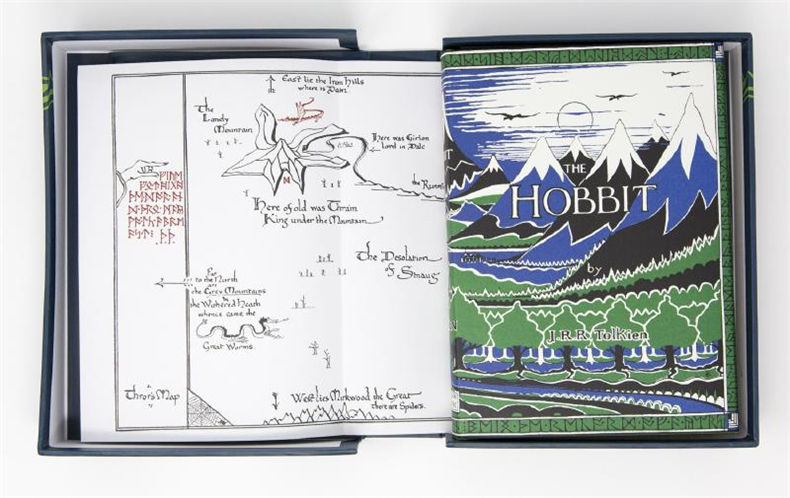 East lie the Iron Hills
where is Dain.
The
Lonely
Mountain
Here was Girion
Lord in Dale
the Runni
Here of old was Thrain
King under the Mountain
The Desolation
of Smaug.
Far
to the North
are
the Grey Mountains
& the Withered Heath
whence came the
Great Worms.
Thror's Map
West lies Mirkwood the Great
there are Spiders.
THE
HOBBIT
by
J.R.R. Tolkien